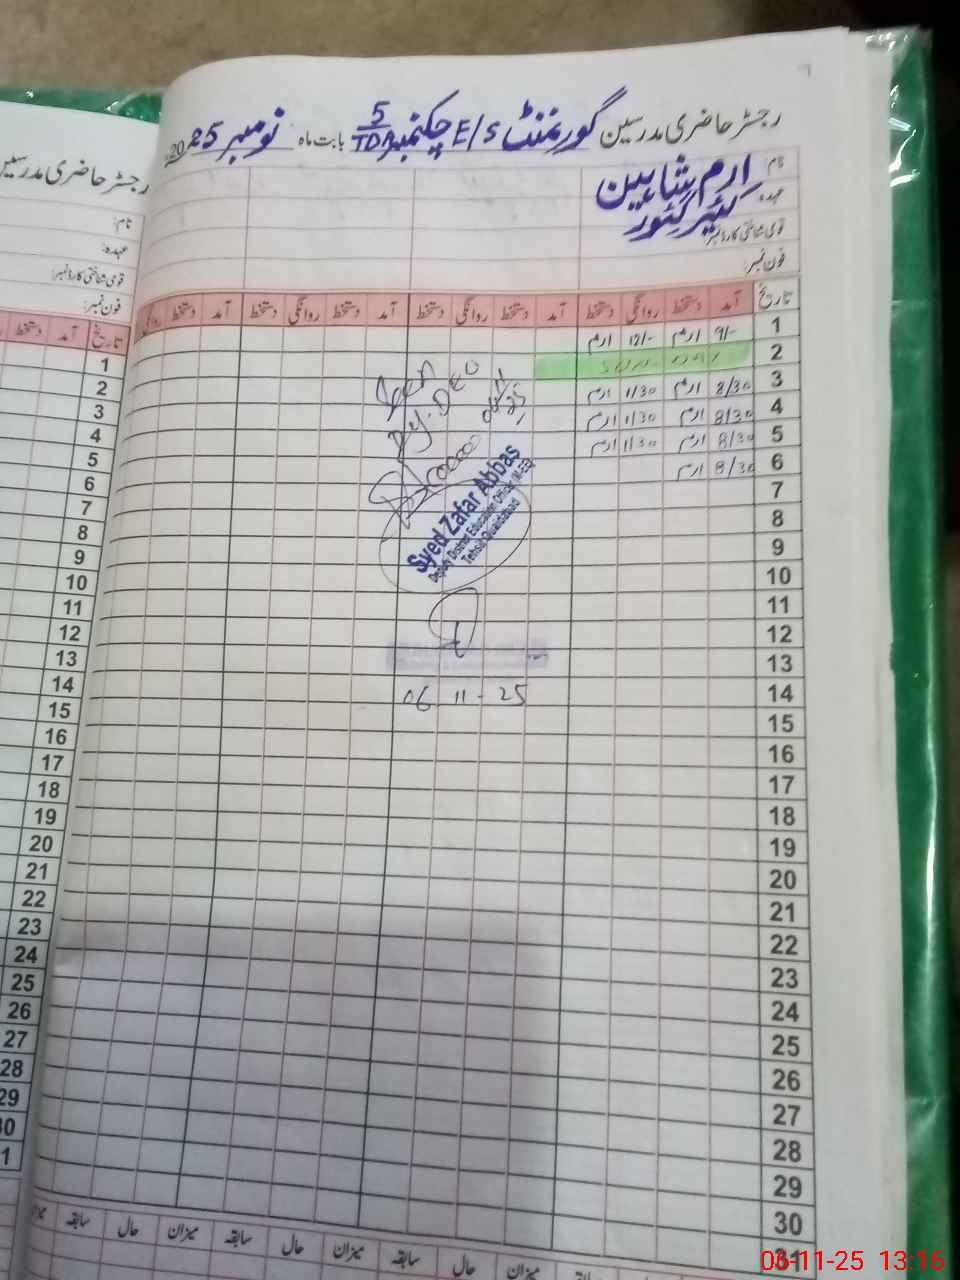 رجسٹر حاضری مدرسین گورنمنٹ E/S چکنمبر 5/TDA بابت ماہ نومبر 2025
نام ارم شاہین
عہدہ کیئر گیور
قومی شناختی کارڈ نمبر:
فون نمبر:
تاریخ آمد دستخط روانگی دستخط آمد دستخط روانگی دستخط آمد دستخط روانگی دستخط آمد دستخط روانگی
1 9/- ارم 12/- ارم
2 SUNDAY
3 8/30 ارم 1/30 ارم
4 8/30 ارم 1/30 ارم
5 8/30 ارم 1/30 ارم
6 8/30 ارم
7
8
9
10
11
12
13
14
15
16
17
18
19
20
21
22
23
24
25
26
27
28
29
30
31
Seen
Dy. DEO
06/11/25
Syed Zafar Abbas
Deputy District Education Officer (M-EE)
Tehsil Quaidabad
06-11-25
سابقہ حال میزان سابقہ حال میزان سابقہ حال میزان
رجسٹر حاضری مدرسین
نام:
عہدہ:
قومی شناختی کارڈ نمبر:
فون نمبر:
تاریخ آمد دستخط
1
2
3
4
5
6
7
8
9
10
11
12
13
14
15
16
17
18
19
20
21
22
23
24
25
26
27
28
29
30
1
06-11-25 13:16